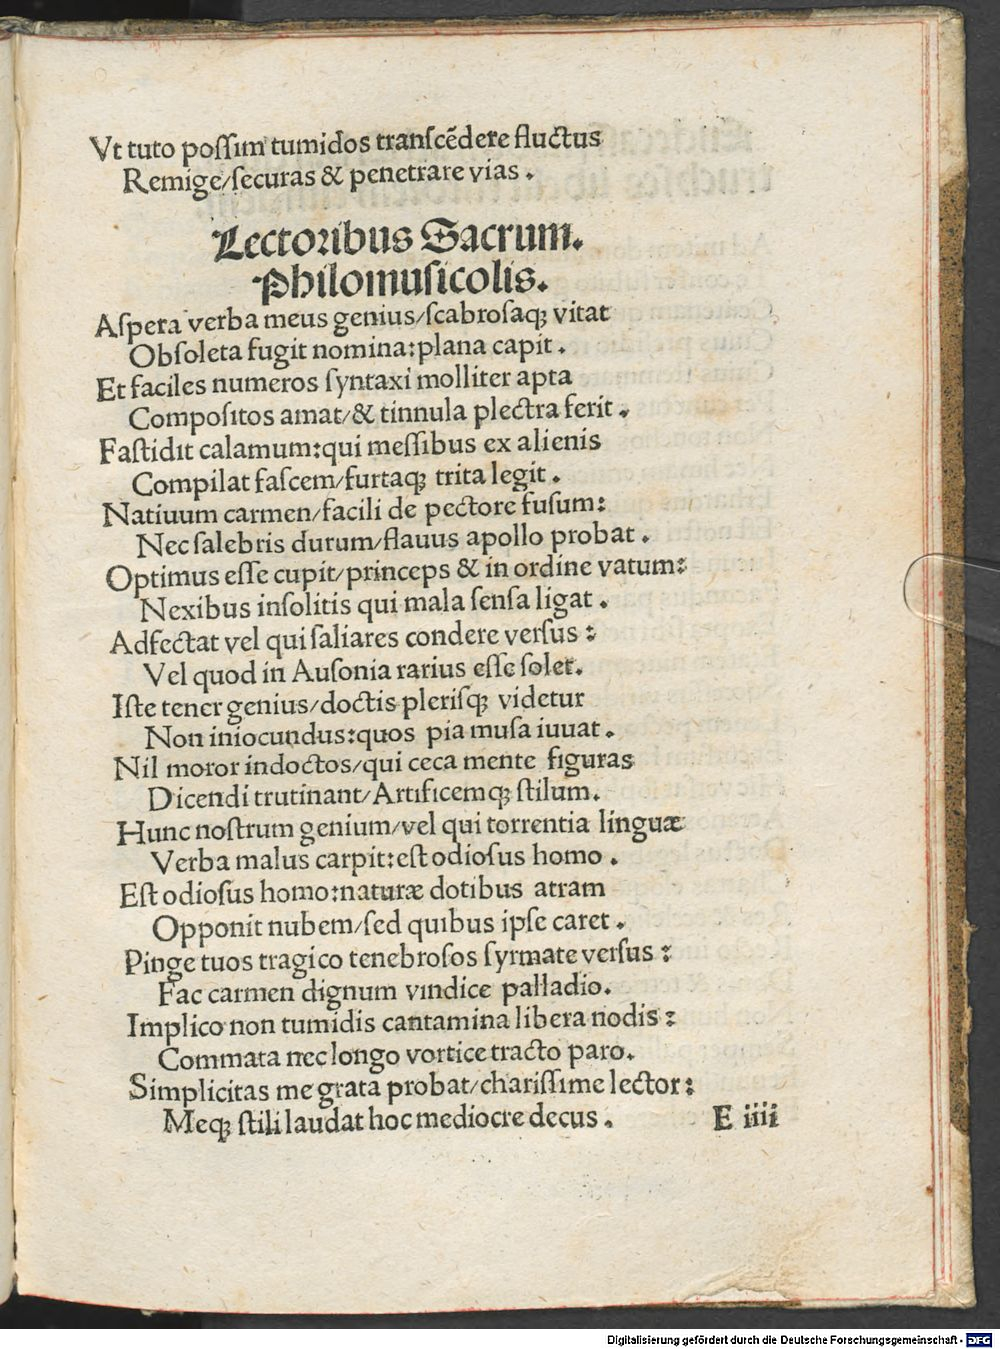 Vt tuto poſſim tumidos tranſcẽdere fluctus
Remige/ſecuras & penetrare vias .
Lectoꝛibus Sacrum.
Philomuſicolis.
Aſpera verba meus genius/ſcabroſaqꝫ vitat
Obſoleta fugit nomina:plana capit .
Et faciles numeros ſyntaxi molliter apta
Compoſitos amat/& tinnula plectra ferit .
Faſtidit calamum:qui meſſibus ex alienis
Compilat faſcem/furtaqꝫ trita legit .
Natiuum carmen/facili de pectore fuſum:
Nec ſalebris durum/flauus apollo probat .
Optimus eſſe cupit/princeps & in ordine vatum:
Nexibus inſolitis qui mala ſenſa ligat .
Adfectat vel qui ſaliares condere verſus :
Vel quod in Auſonia rarius eſſe ſolet.
Iſte tener genius/doctis pleriſqꝫ videtur
Non iniocundus:quos pia muſa iuuat .
Nil moror indoctos/qui ceca mente figuras
Dicendi trutinant/Artificemqꝫ ſtilum.
Hunc noſtrum genium/vel qui torrentia linguæ
Verba malus carpit:eſt odioſus homo .
Eſt odioſus homo:naturæ dotibus atram
Opponit nubem/ſed quibus ipſe caret .
Pinge tuos tragico tenebroſos ſyrmate verſus :
Fac carmen dignum vindice palladio.
Implico non tumidis cantamina libera nodis :
Commata nec longo vortice tracto paro.
Simplicitas me grata probat/chariſſime lector:
Meqꝫ ſtili laudat hoc mediocre decus .
E iiii
Digitalisierung gefördert durch die Deutsche Forschungsgemeinschaft - DFG